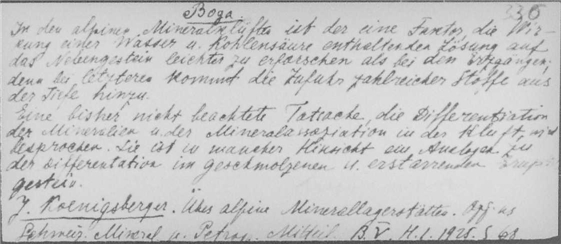 Boga 336
In den alpinen Mineralklüften ist der eine Faktor, die Wir-
kung einer Wasser u. Kohlensäure enthaltenden Lösung auf
das Nebengestein leichter zu erforschen als bei den Erzgängen;
denn bei letzteren kommt die Zufuhr zahlreicher Stoffe aus
der Tiefe hinzu.
Eine bisher nicht beachtete Tatsache, die Differentiation
der Mineralien u. der Mineralassoziation in der Kluft, wird
besprochen. Sie ist in mancher Hinsicht ein Analogon zu
der Differentation im geschmolzenen u. erstarrenden Erup-
gestein.
J. Koenigsberger. Über alpine Minerallagerstätten.
Schweiz. Mineral. u. Petrog. Mitteil. B. V. H. 1. 1925. S. 68